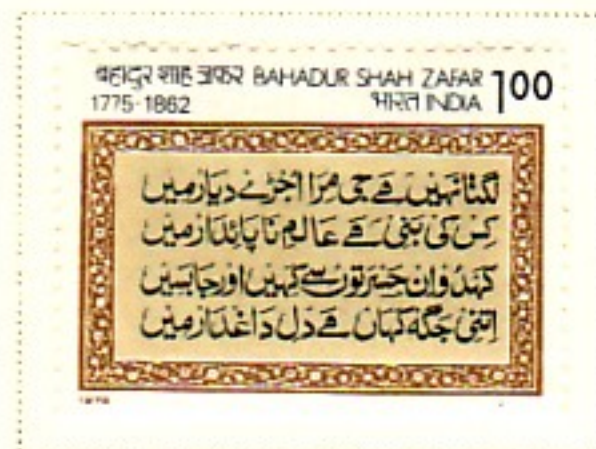 बहादुर शाह ज़फर BAHADUR SHAH ZAFAR 1.00
1775-1862 भारत INDIA
لگتا نہیں ہے جی مرا اجڑے دیار میں
کس کی بنی ہے عالم ناپائدار میں
کہدو ان حسرتوں سے کہیں اور جا بسیں
اتنی جگہ کہاں ہے دل داغدار میں